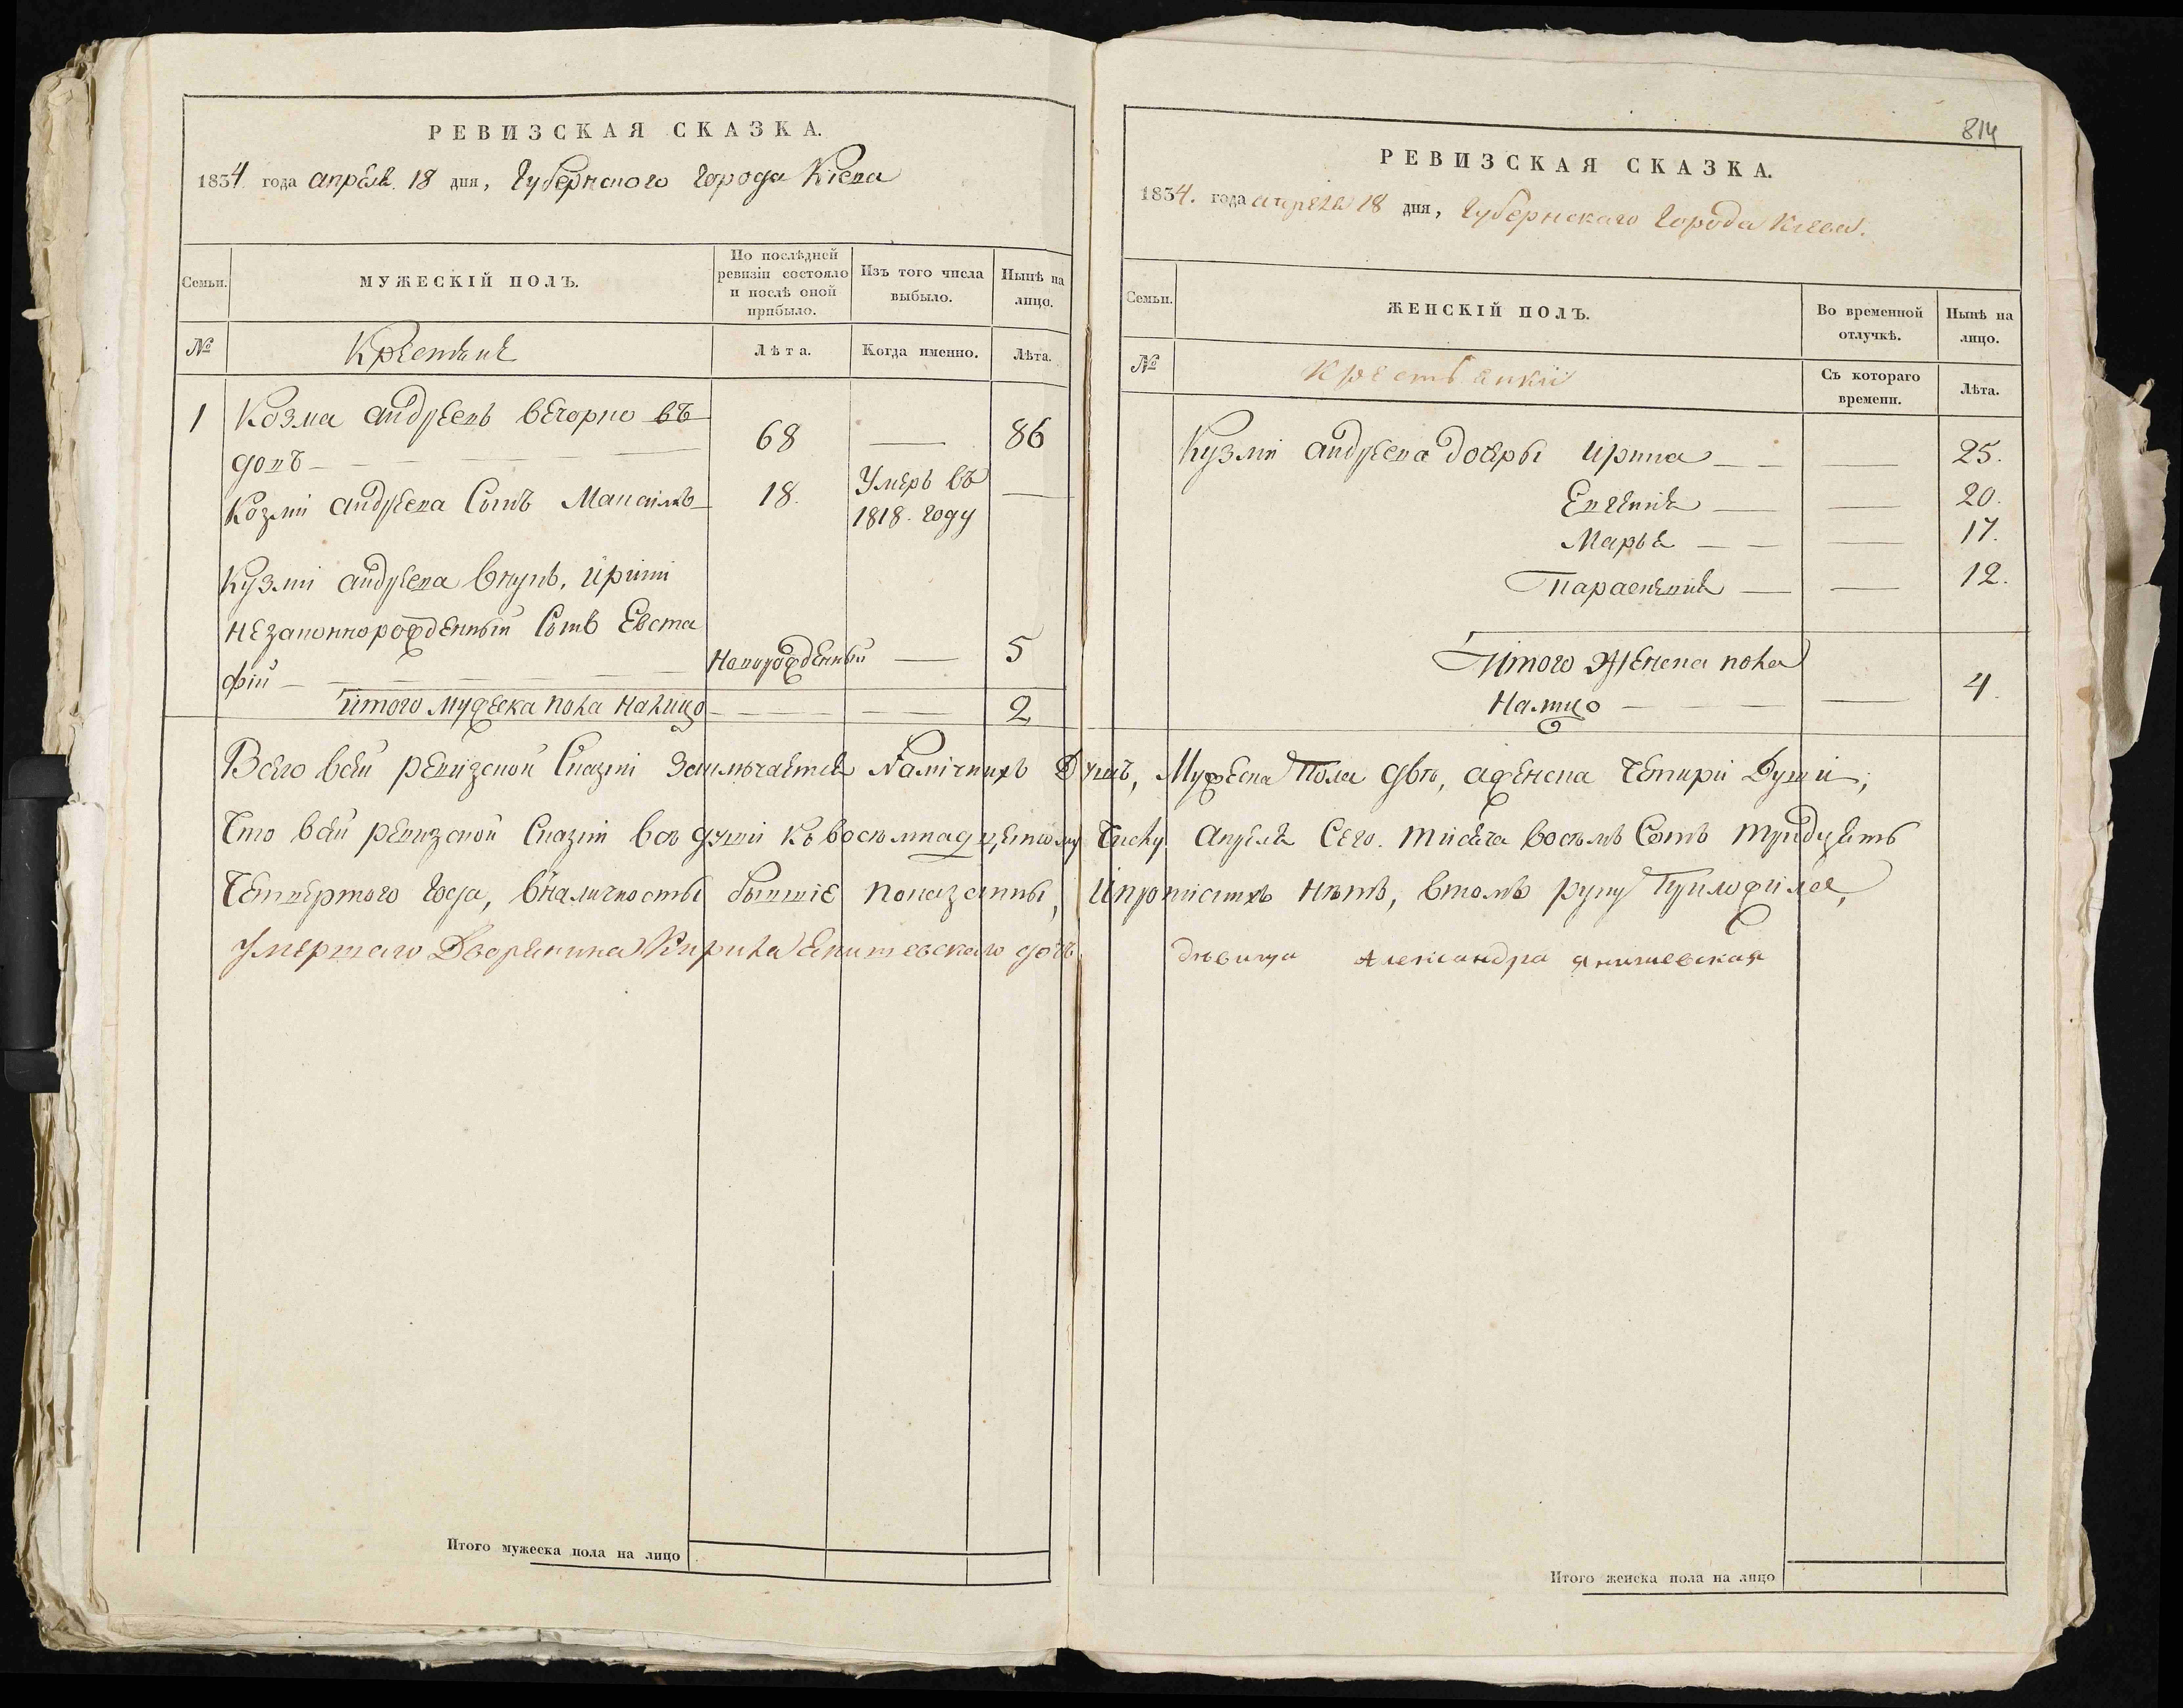 РЕВИЗСКАЯ СКАЗКА.
1834 года апреля 18 дня, Губернского города Киева
Семьи.
МУЖЕСКІЙ ПОЛЪ.
По послѣдней ревизіи состояло и послѣ оной прибыло.
Изъ того числа выбыло.
Нынѣ на лицо.
№
Крестяне
Лѣта.
Когда именно.
Лѣта.
1 Козма андреевъ вечорно въ
довъ 68 86
Козми андреева Сынъ 18. Умеръ въ
1818. году
Кузми андреева внукъ, ирини
незаконнорожденный Сынъ Евста
фій новорожденный 5
итого мужеска пола налицо 2
814
РЕВИЗСКАЯ СКАЗКА.
1834. года апреля 18 дня, Губернскаго города Киева.
Семьи.
ЖЕНСКІЙ ПОЛЪ.
Во временной отлучкѣ.
Нынѣ на лицо.
№
Крестьянки
Съ котораго времени.
Лѣта.
Кузми андреева дочери ирина 25.
Евгения 20.
Марья 17.
Параскевия 12.
итого женска пола
налицо 4.
Всего всей ревизской Сказки заключается Наличнихъ Душъ, Мужеска Пола двѣ, аженска Четири Души;
Что всей ревизской Сказки всѣ души квосемнадцетому Числу апреля Сего. тисяча восемъ Сотъ тридцеть
Четвертого года, вналичносты бывшіе показанны, ипрописнихъ нѣтъ, втомъ руку Приложила,
умершаго Дворянина Кирила Янишевскаго дочь дѣвица Александра Янишевская
Итого мужеска пола на лицо
Итого женска пола на лицо